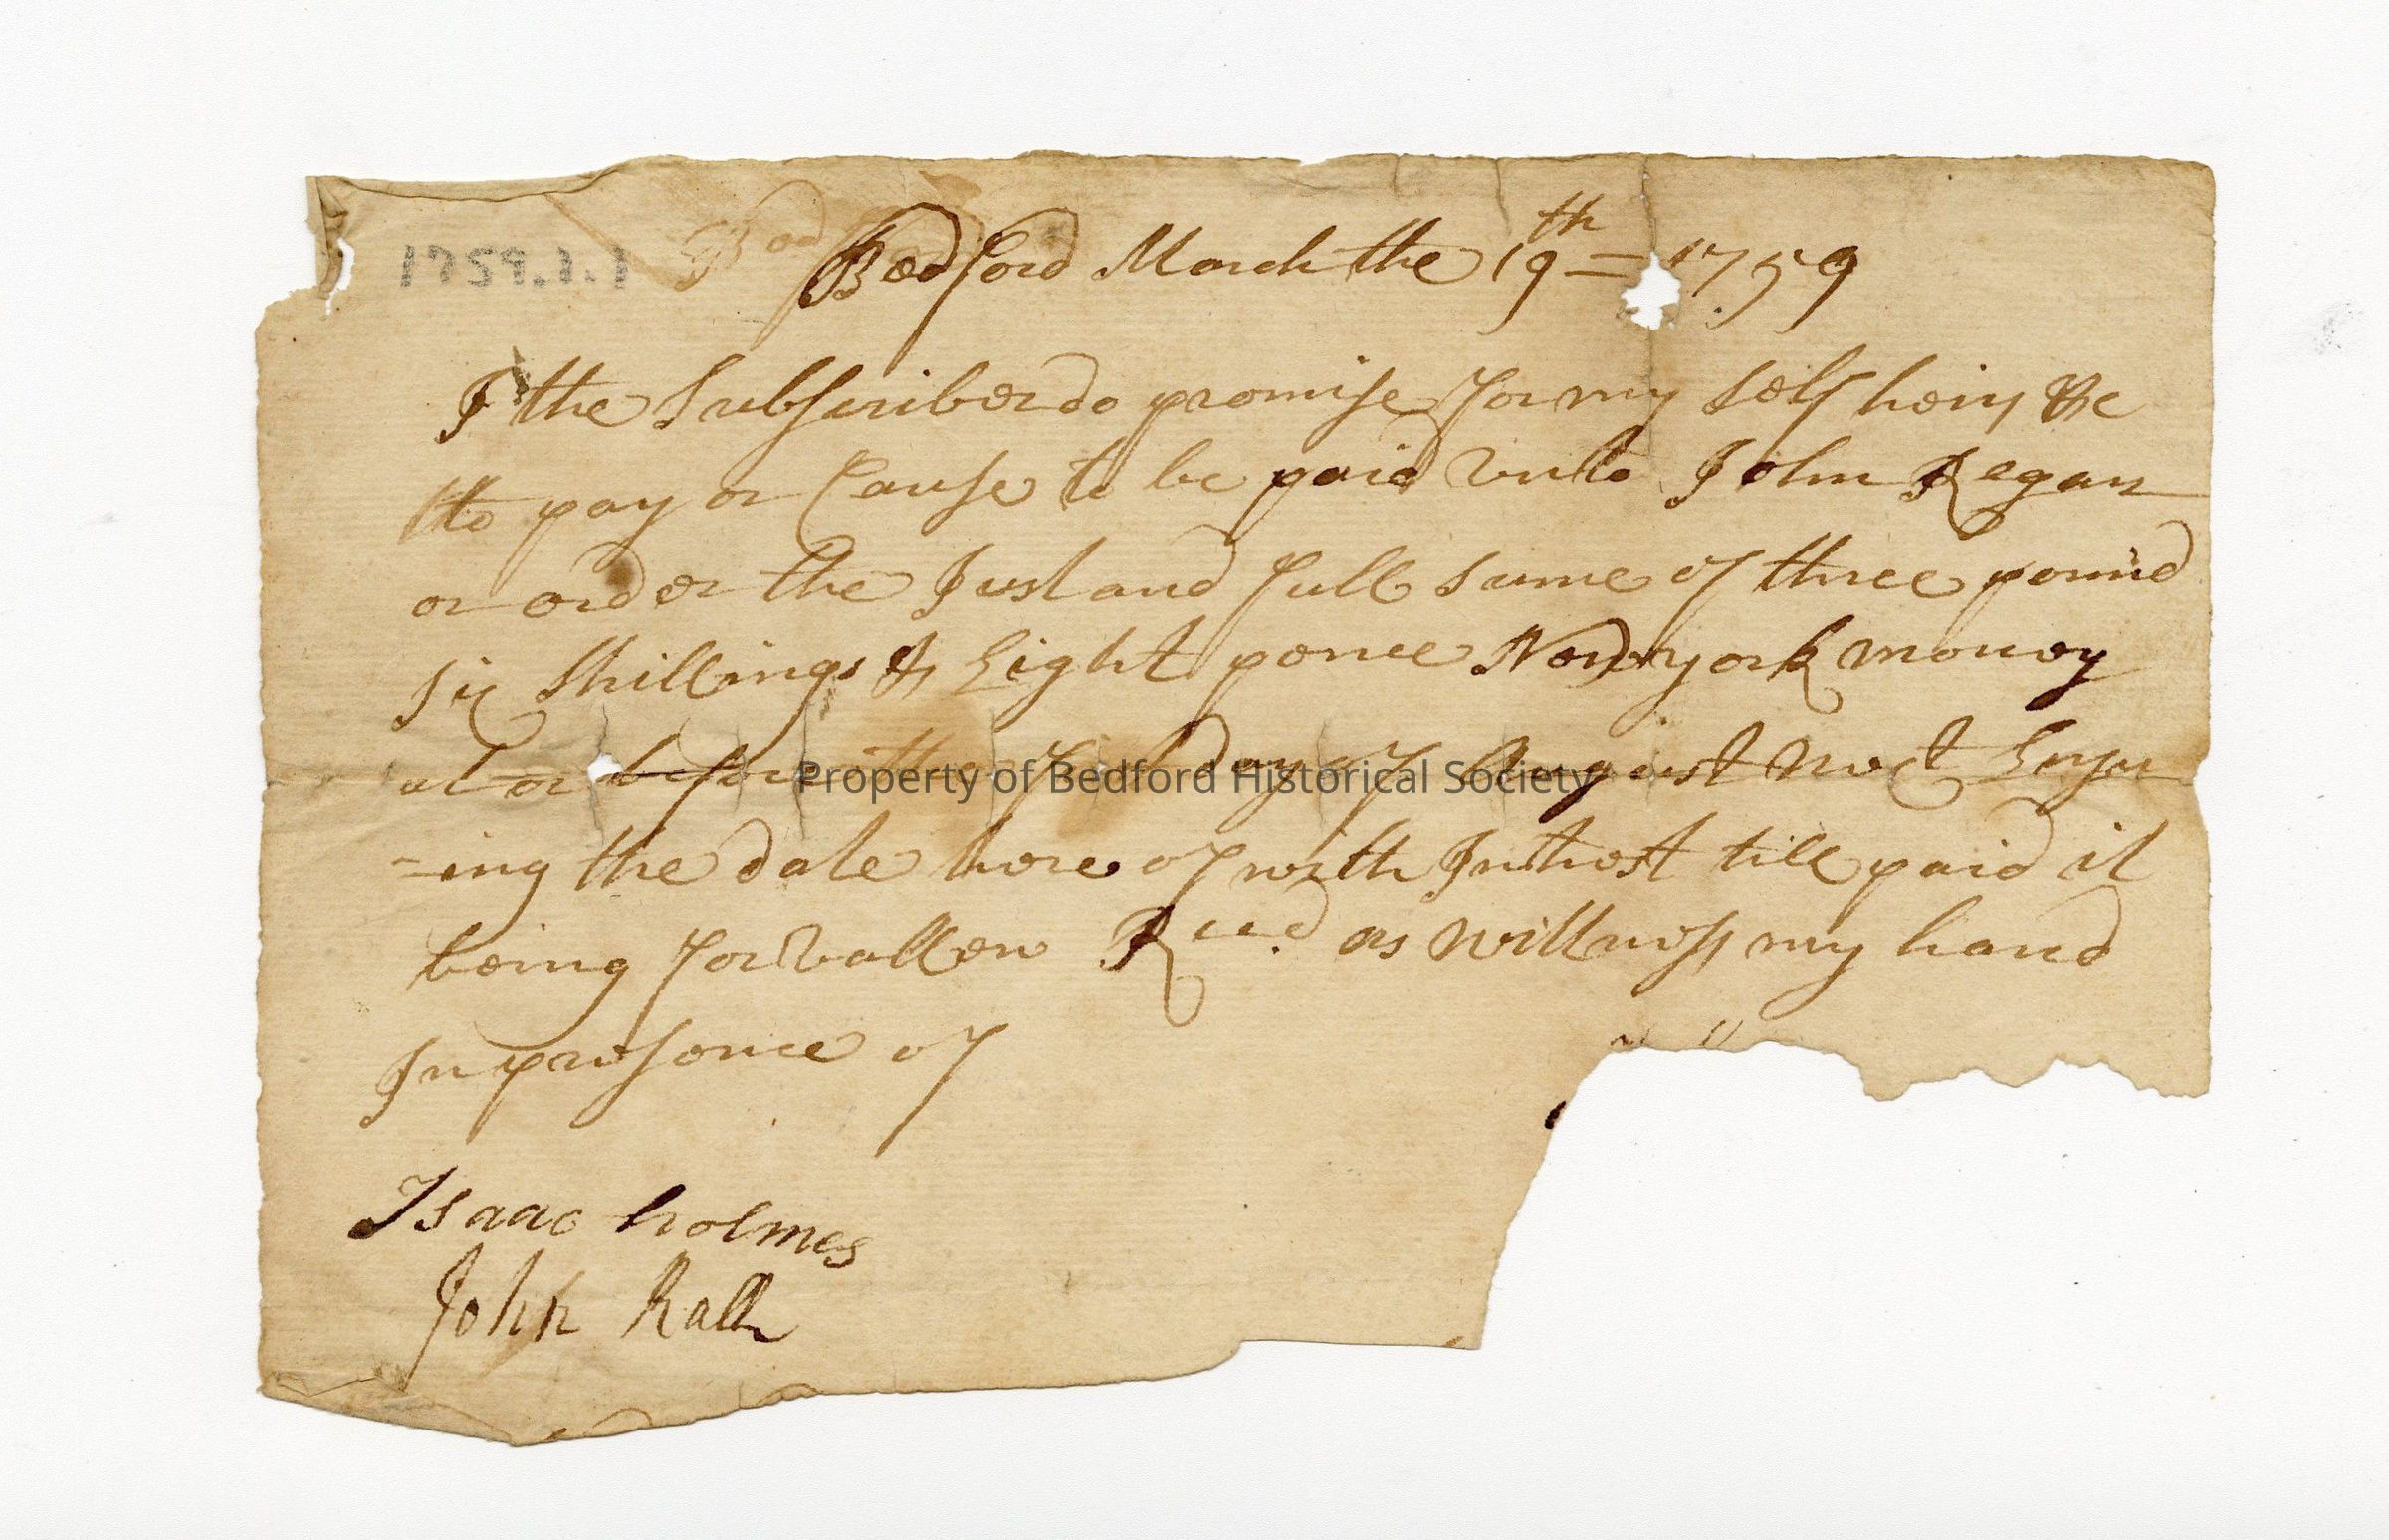 1759.1.1
Bed
Bedford March the 19th = 1759
I the Subscriber do promise for my self heirs &c
to pay or Cause to be paid unto John Regan
or order the Just and full sume of three pound
six shillings & Eight pence New york money
at or before the day of August next Ensu
-ing the date here of with Intrest till paid it
being for vallew Recd as wittness my hand
In presence of
Isaac holmes
John Rall
Property of Bedford Historical Society